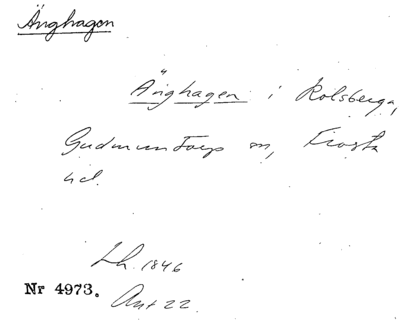 Änghagen
Änghagen i Rolsberga,
Gudmuntorp sn, Frosta
hd.
Lh. 1846
Nr 4973.
Ant 22.